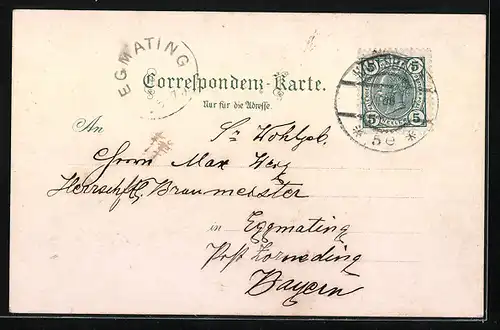 EGMATING
5
5
5
5
Correspondenz-Karte.
Nur für die Adresse.
* 5e *
An Sr Wohlgeb.
Herrn Max
Herrschftl. Braumeister
in Eggmating
Post Zorneding
Bayern